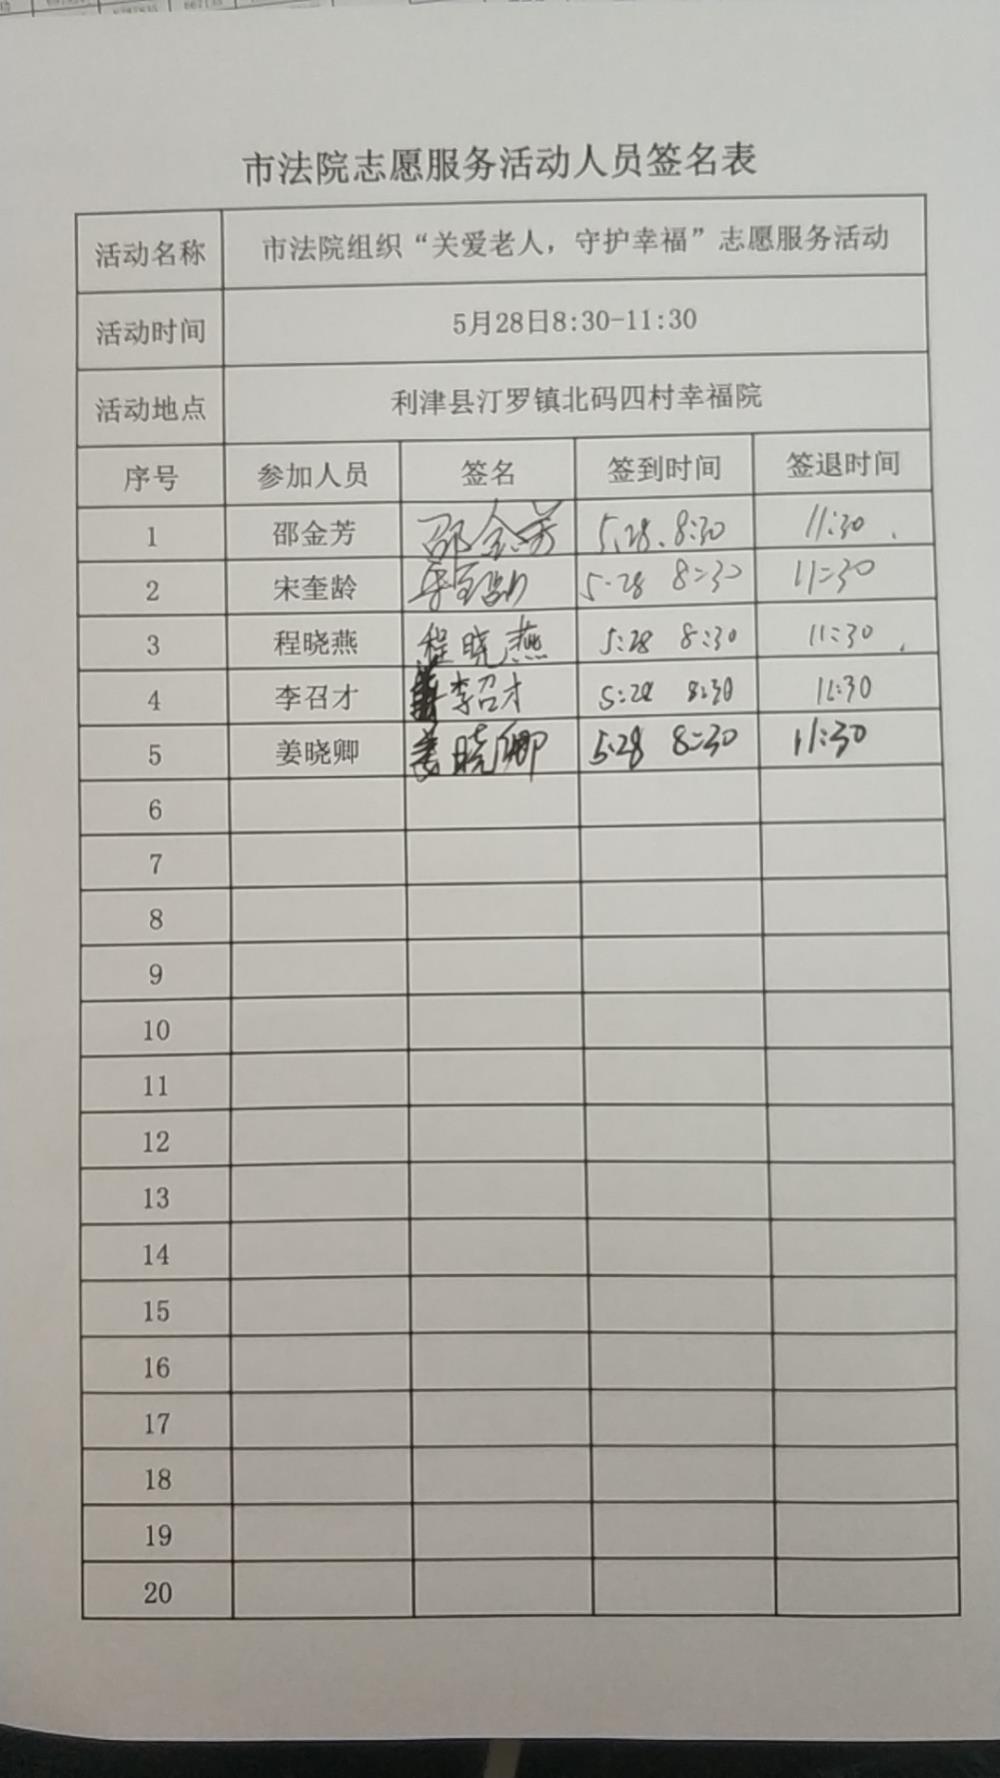 市法院志愿服务活动人员签名表
活动名称 市法院组织“关爱老人，守护幸福”志愿服务活动
活动时间 5月28日8:30-11:30
活动地点 利津县汀罗镇北码四村幸福院
序号 参加人员 签名 签到时间 签退时间
1 邵金芳 邵金芳 5.28. 8:30 11:30
2 宋奎龄 5.28 8:30 11:30
3 程晓燕 程晓燕 5:28 8:30 11:30
4 李召才 李召才 5:28 8:30 11:30
5 姜晓卿 姜晓卿 5.28 8:30 11:30
6
7
8
9
10
11
12
13
14
15
16
17
18
19
20